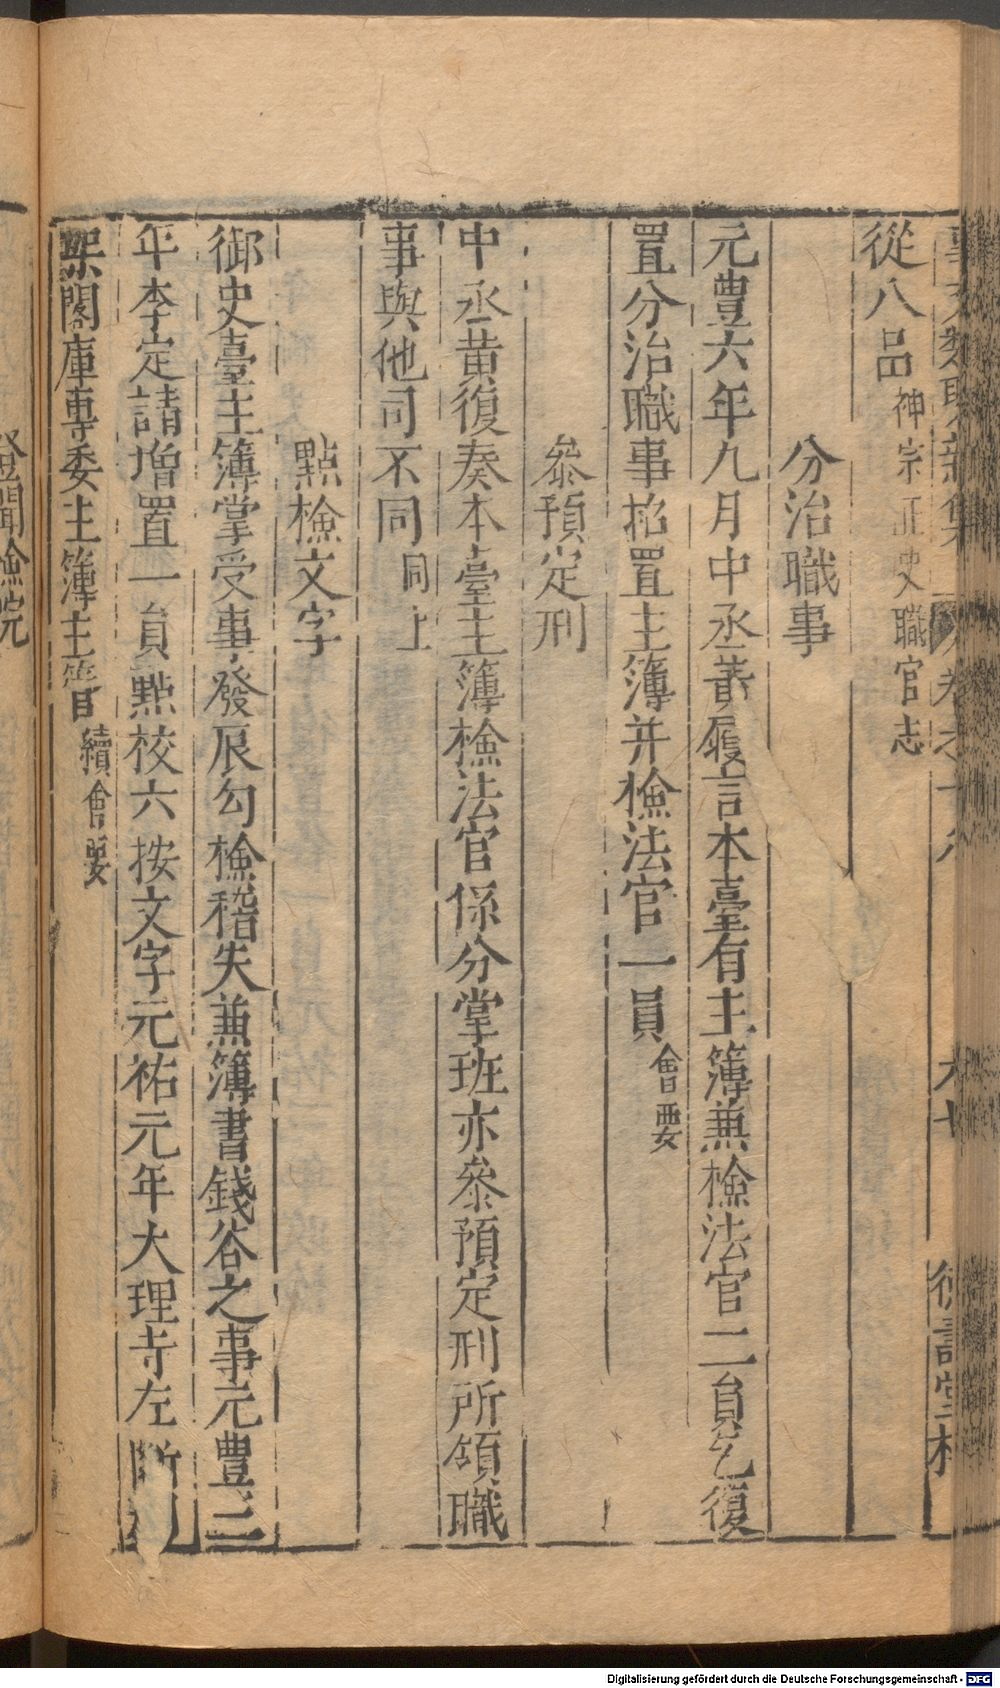 從八品神宗正史職官志
分治職事
元豐六年九月中丞黃履言本臺有主簿兼檢法官二員乞復
置分治職事招置主簿并檢法官一員會要
叅預定刑
中丞黃復奏本臺主簿檢法官係分掌班亦叅預定刑所領職
事與他司不同同上
點檢文字
御史臺主簿掌受事發辰勾檢稽失兼簿書錢谷之事元豐三
年李定請增置一員點校六按文字元祐元年大理寺左斷刑
架閣庫專委主簿主管續會要
登聞檢院
Digitalisierung gefördert durch die Deutsche Forschungsgemeinschaft - DFG